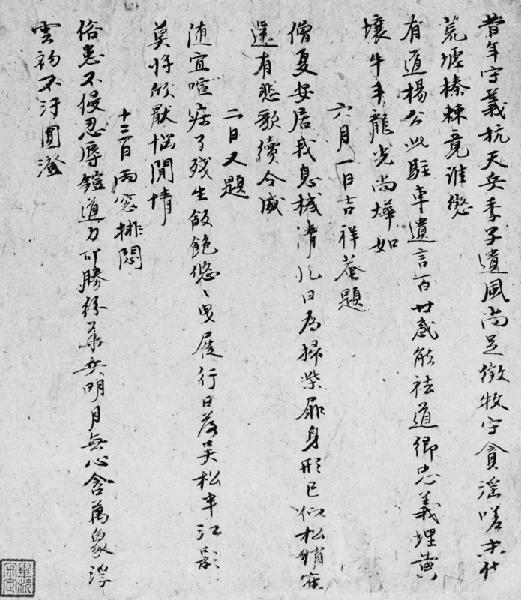 昔年守義抗天兵季子遺風尚足徵牧守貪淫嗟未
荒墟榛棘竟誰
有道楊公此駐車遺言百世感能祛道卿忠義埋黃
壤牛斗龍光尚燁如
六月一日吉祥菴題
僧夏安居我息機清凡日為掃柴扉身形已似松
還有悲歌續令威
二日又題
宜喧寂了殘生飯飽悠悠曳履行日落吳松半江影
莫將欣厭惱閒情
十二日雨窓排悶
俗患不侵忍辱鎧道力可勝紛華兵明月無心含萬象浮
雲初不汙圓澄